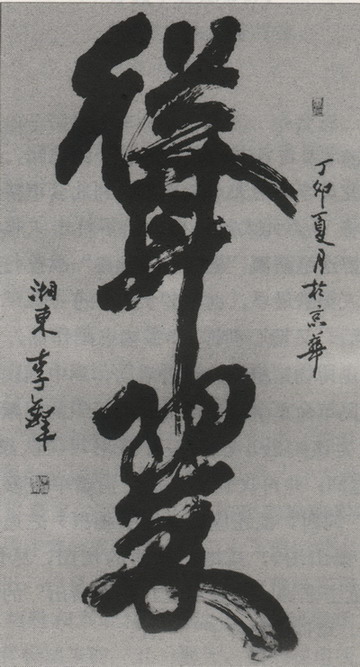 丁卯夏月於京華
聳翠
湘東李鐸